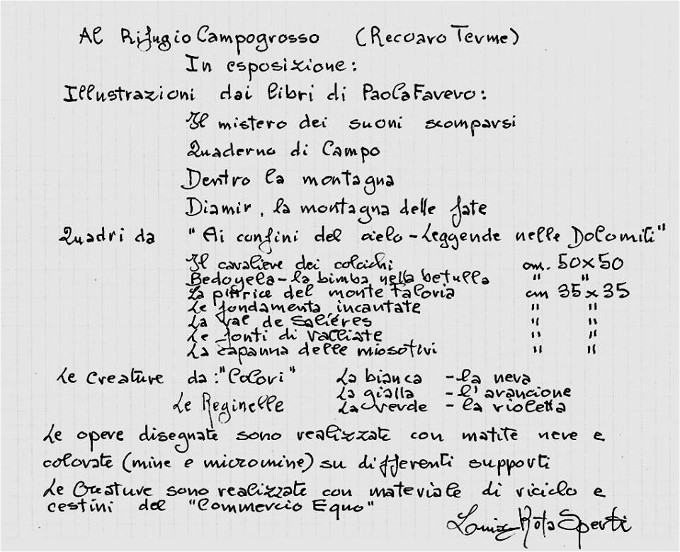 Al Rifugio Campogrosso (Recoaro Terme)
In esposizione:
Illustrazioni dai libri di Paola Favero:
Il mistero dei suoni scomparsi
Quaderno di Campo
Dentro la montagna
Diamir, la montagna delle fate
Quadri da "Ai confini del cielo - Leggende nelle Dolomiti"
Il cavaliere dei colchichi cm. 50x50
Bedoyela - la bimba nella betulla " "
La pittrice del monte Faloria cm 35x35
Le fondamenta incantate " "
La Val de Salières " "
Le fonti di Valliate " "
La capanna delle miosotivi " "
Le Creature da: "Colori" La bianca - la nera
Le Reginelle La gialla - l'arancione
La verde - la violetta
Le opere disegnate sono realizzate con matite nere e
colorate (mine e micromine) su differenti supporti
Le Creature sono realizzate con materiale di riciclo e
cestini del "Commercio Equo"
Luisa Rota Sperti